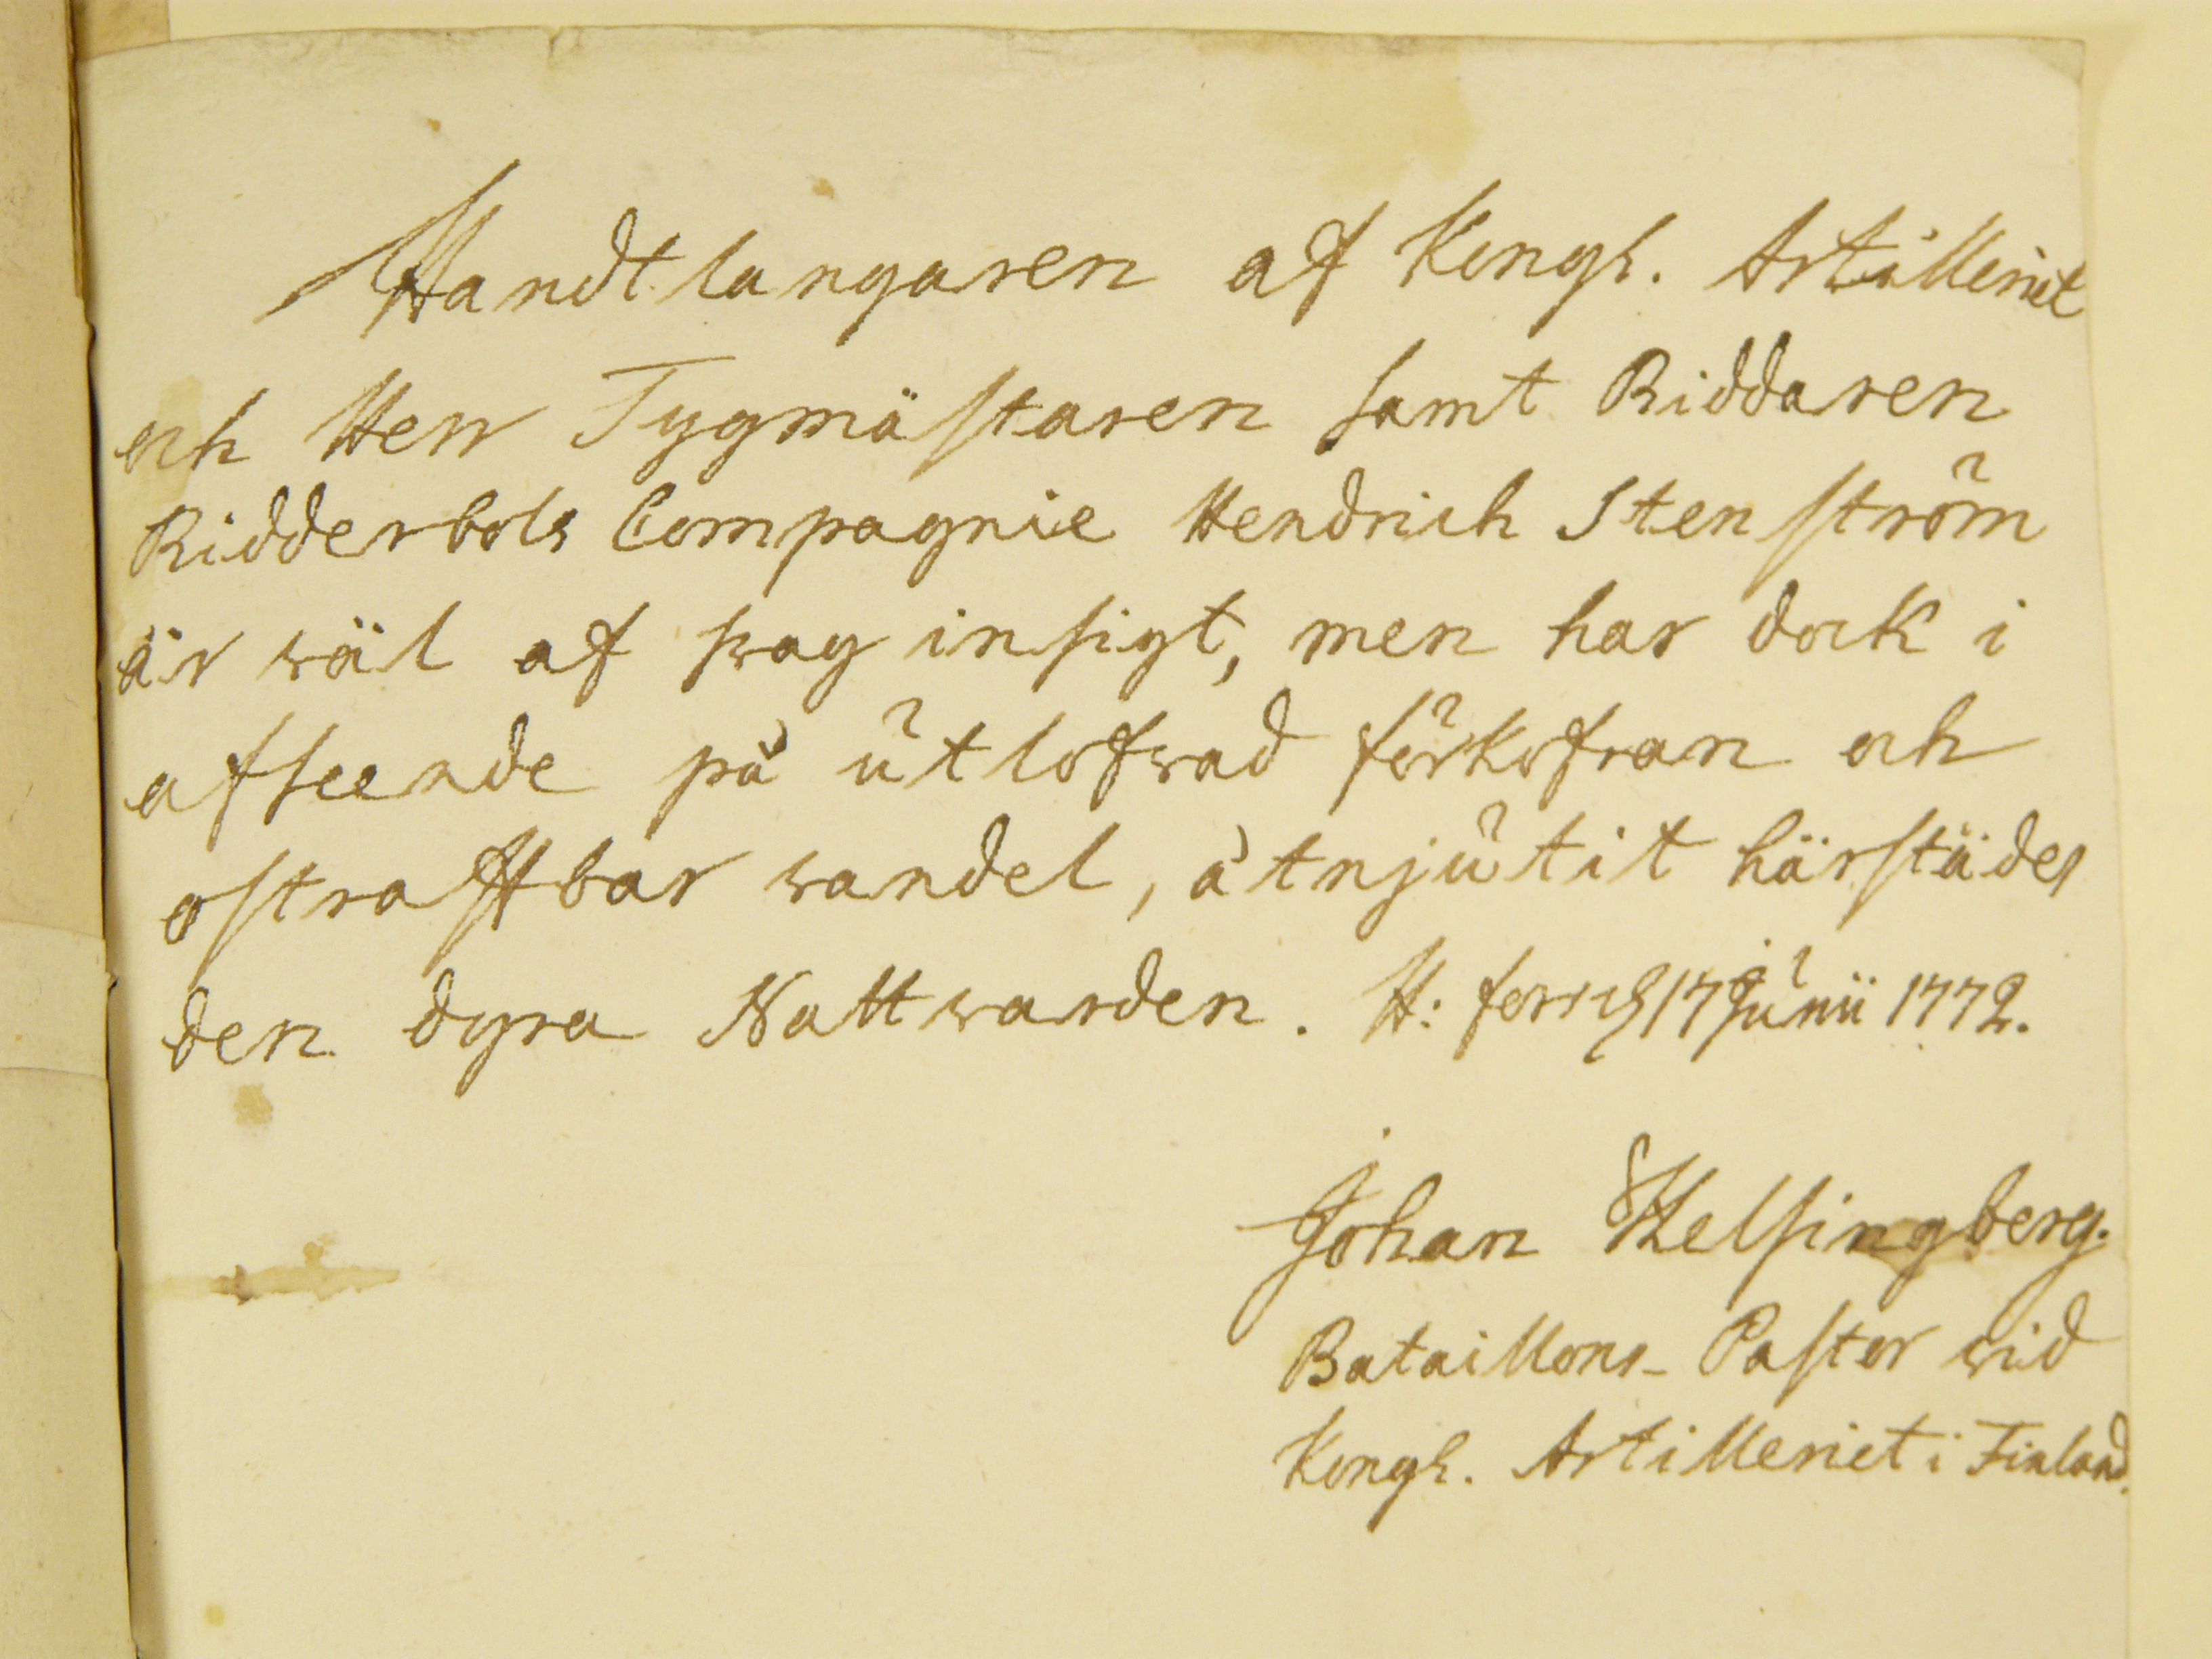 Handtlangaren af Kongl. Artilleriet
och Herr Tygmästaren samt Riddaren
Ridderbols Compagnie Hendrich Stenström
är wäl af swag insigt, men har dock i
afseende på utlofwad förkofran och
ostraffbar wandel, åtnjutit härstädes
den dyra Nattwarden. H: fors d 17 Junii 1772.
Johan Helsingberg.
Bataillons-Pastor wid
Kongl. Artilleriet i Finland.